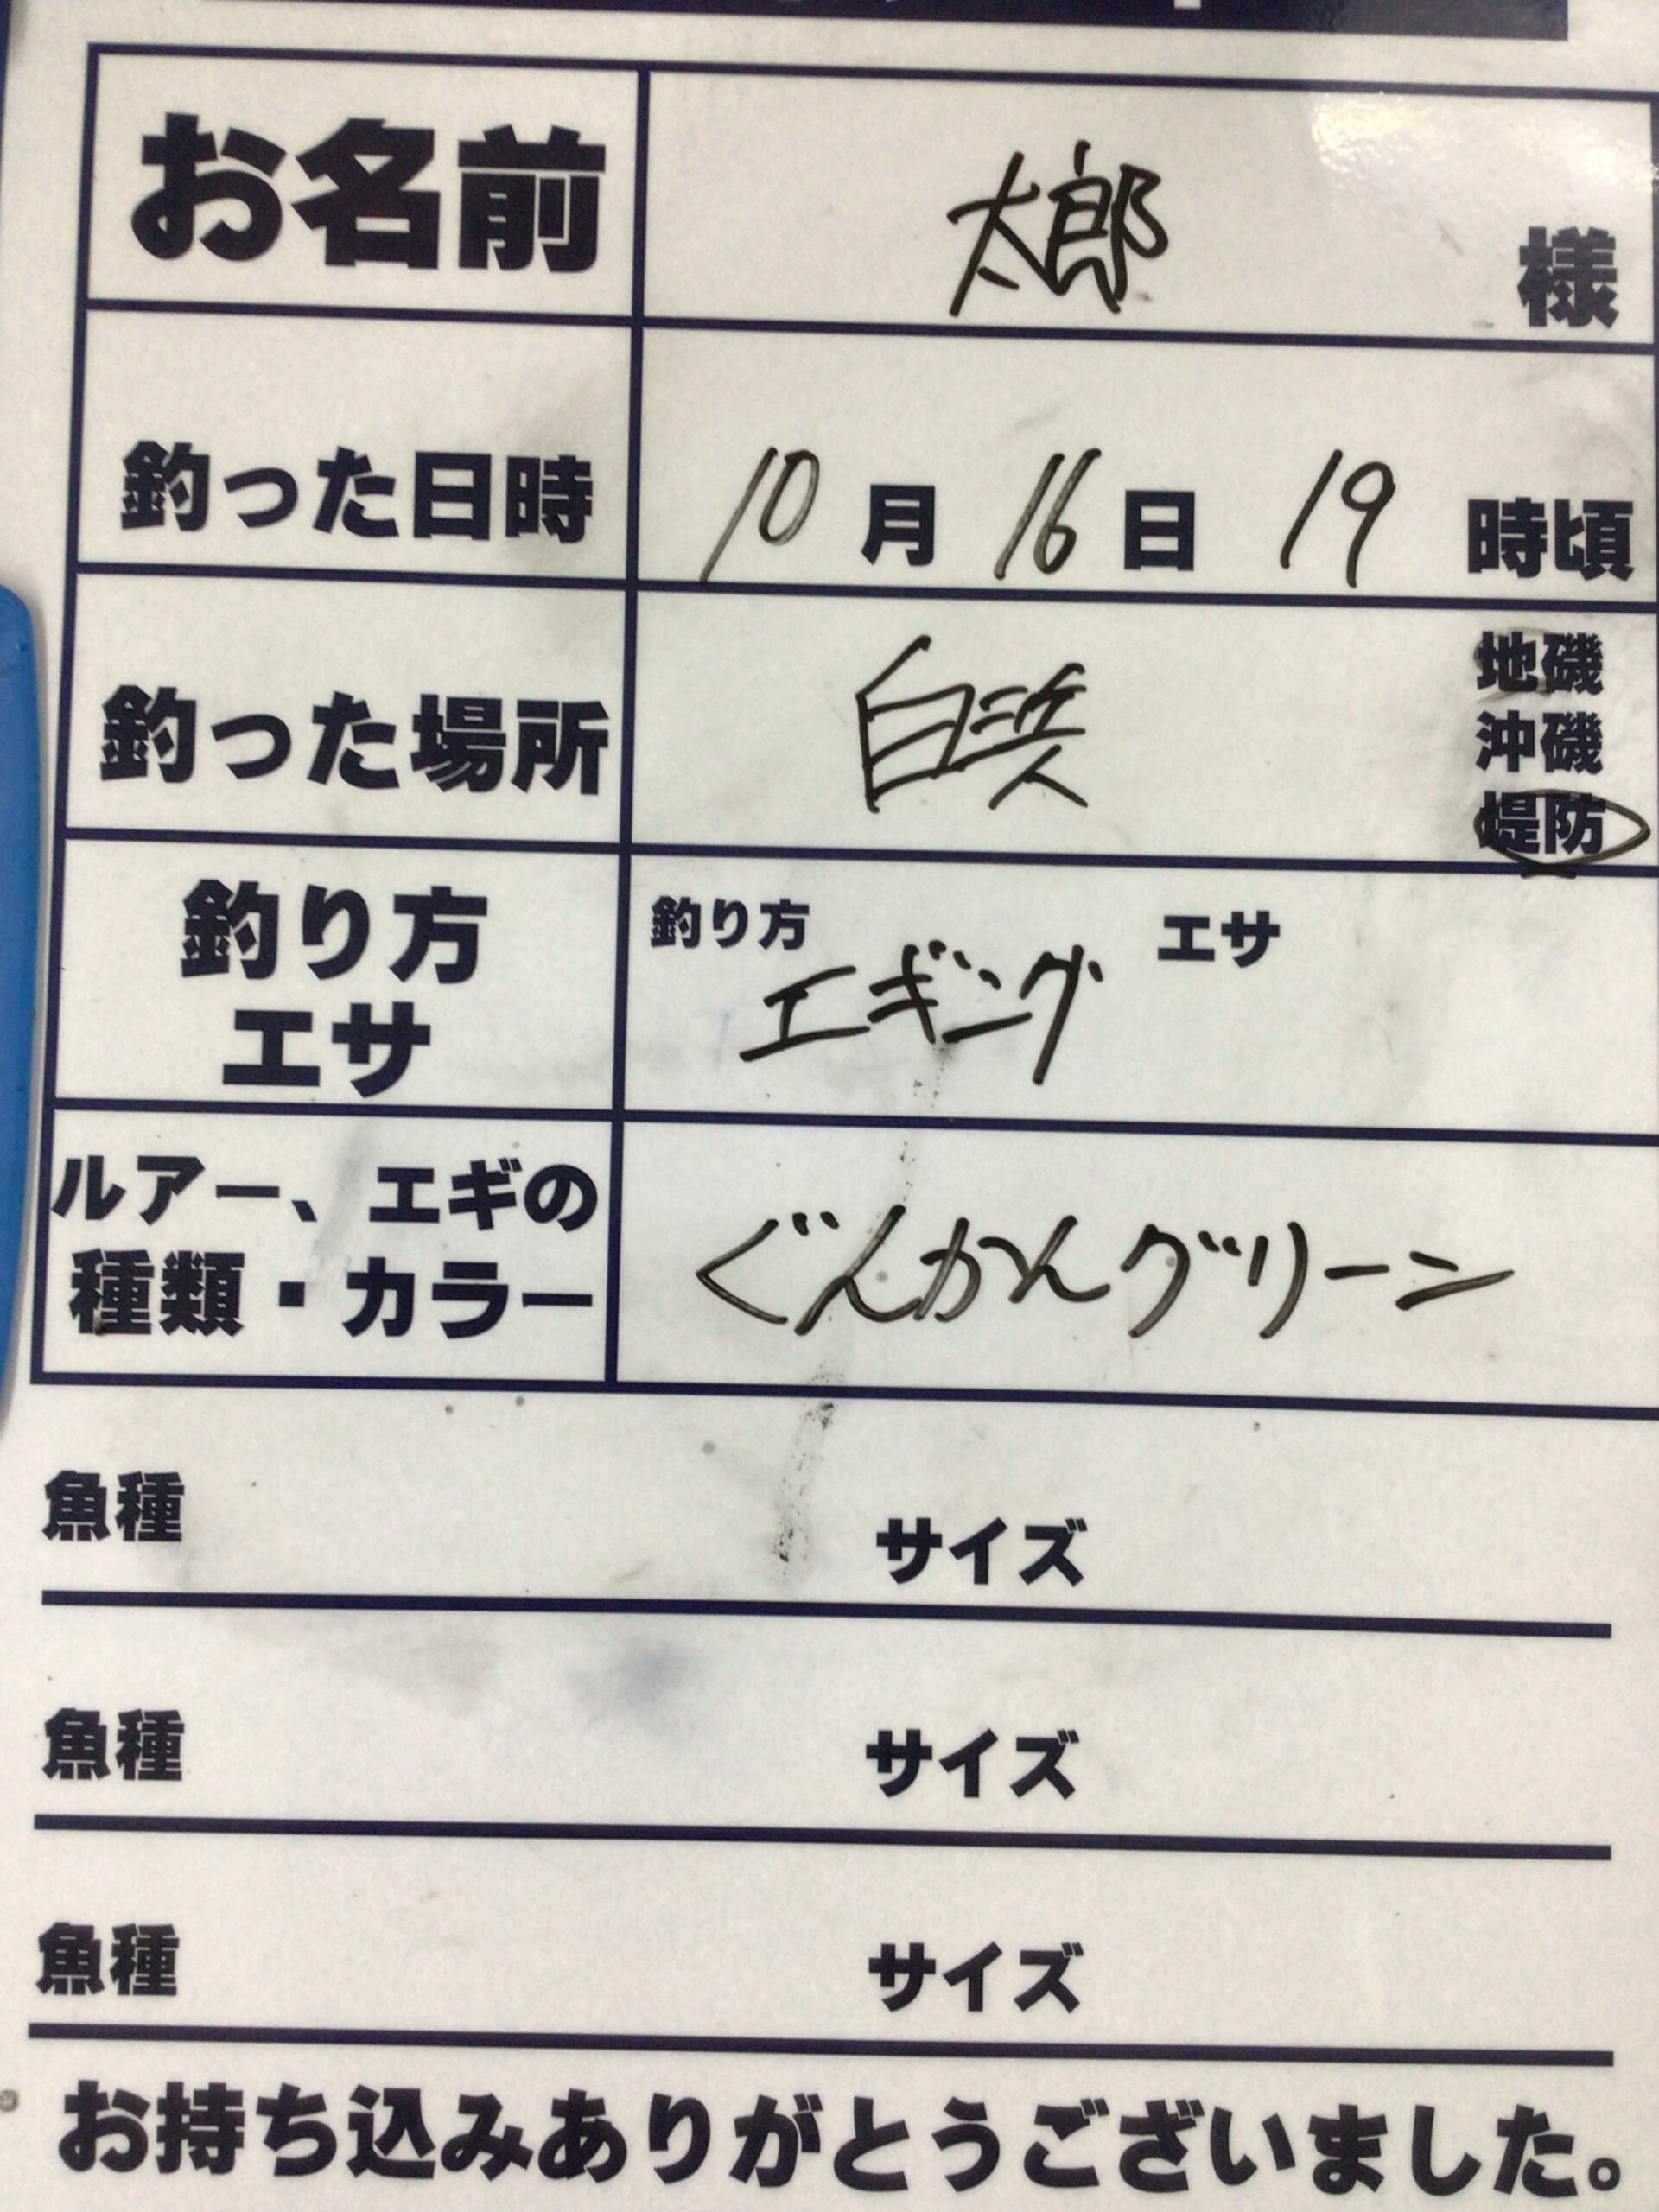 お名前 太郎 様
釣った日時 10月16日 19時頃
釣った場所 白浜
地磯
沖磯
堤防
釣り方 釣り方 エギング エサ
エサ
ルアー、エギの
種類・カラー ぐんかんグリーン
魚種 サイズ
魚種 サイズ
魚種 サイズ
お持ち込みありがとうございました。